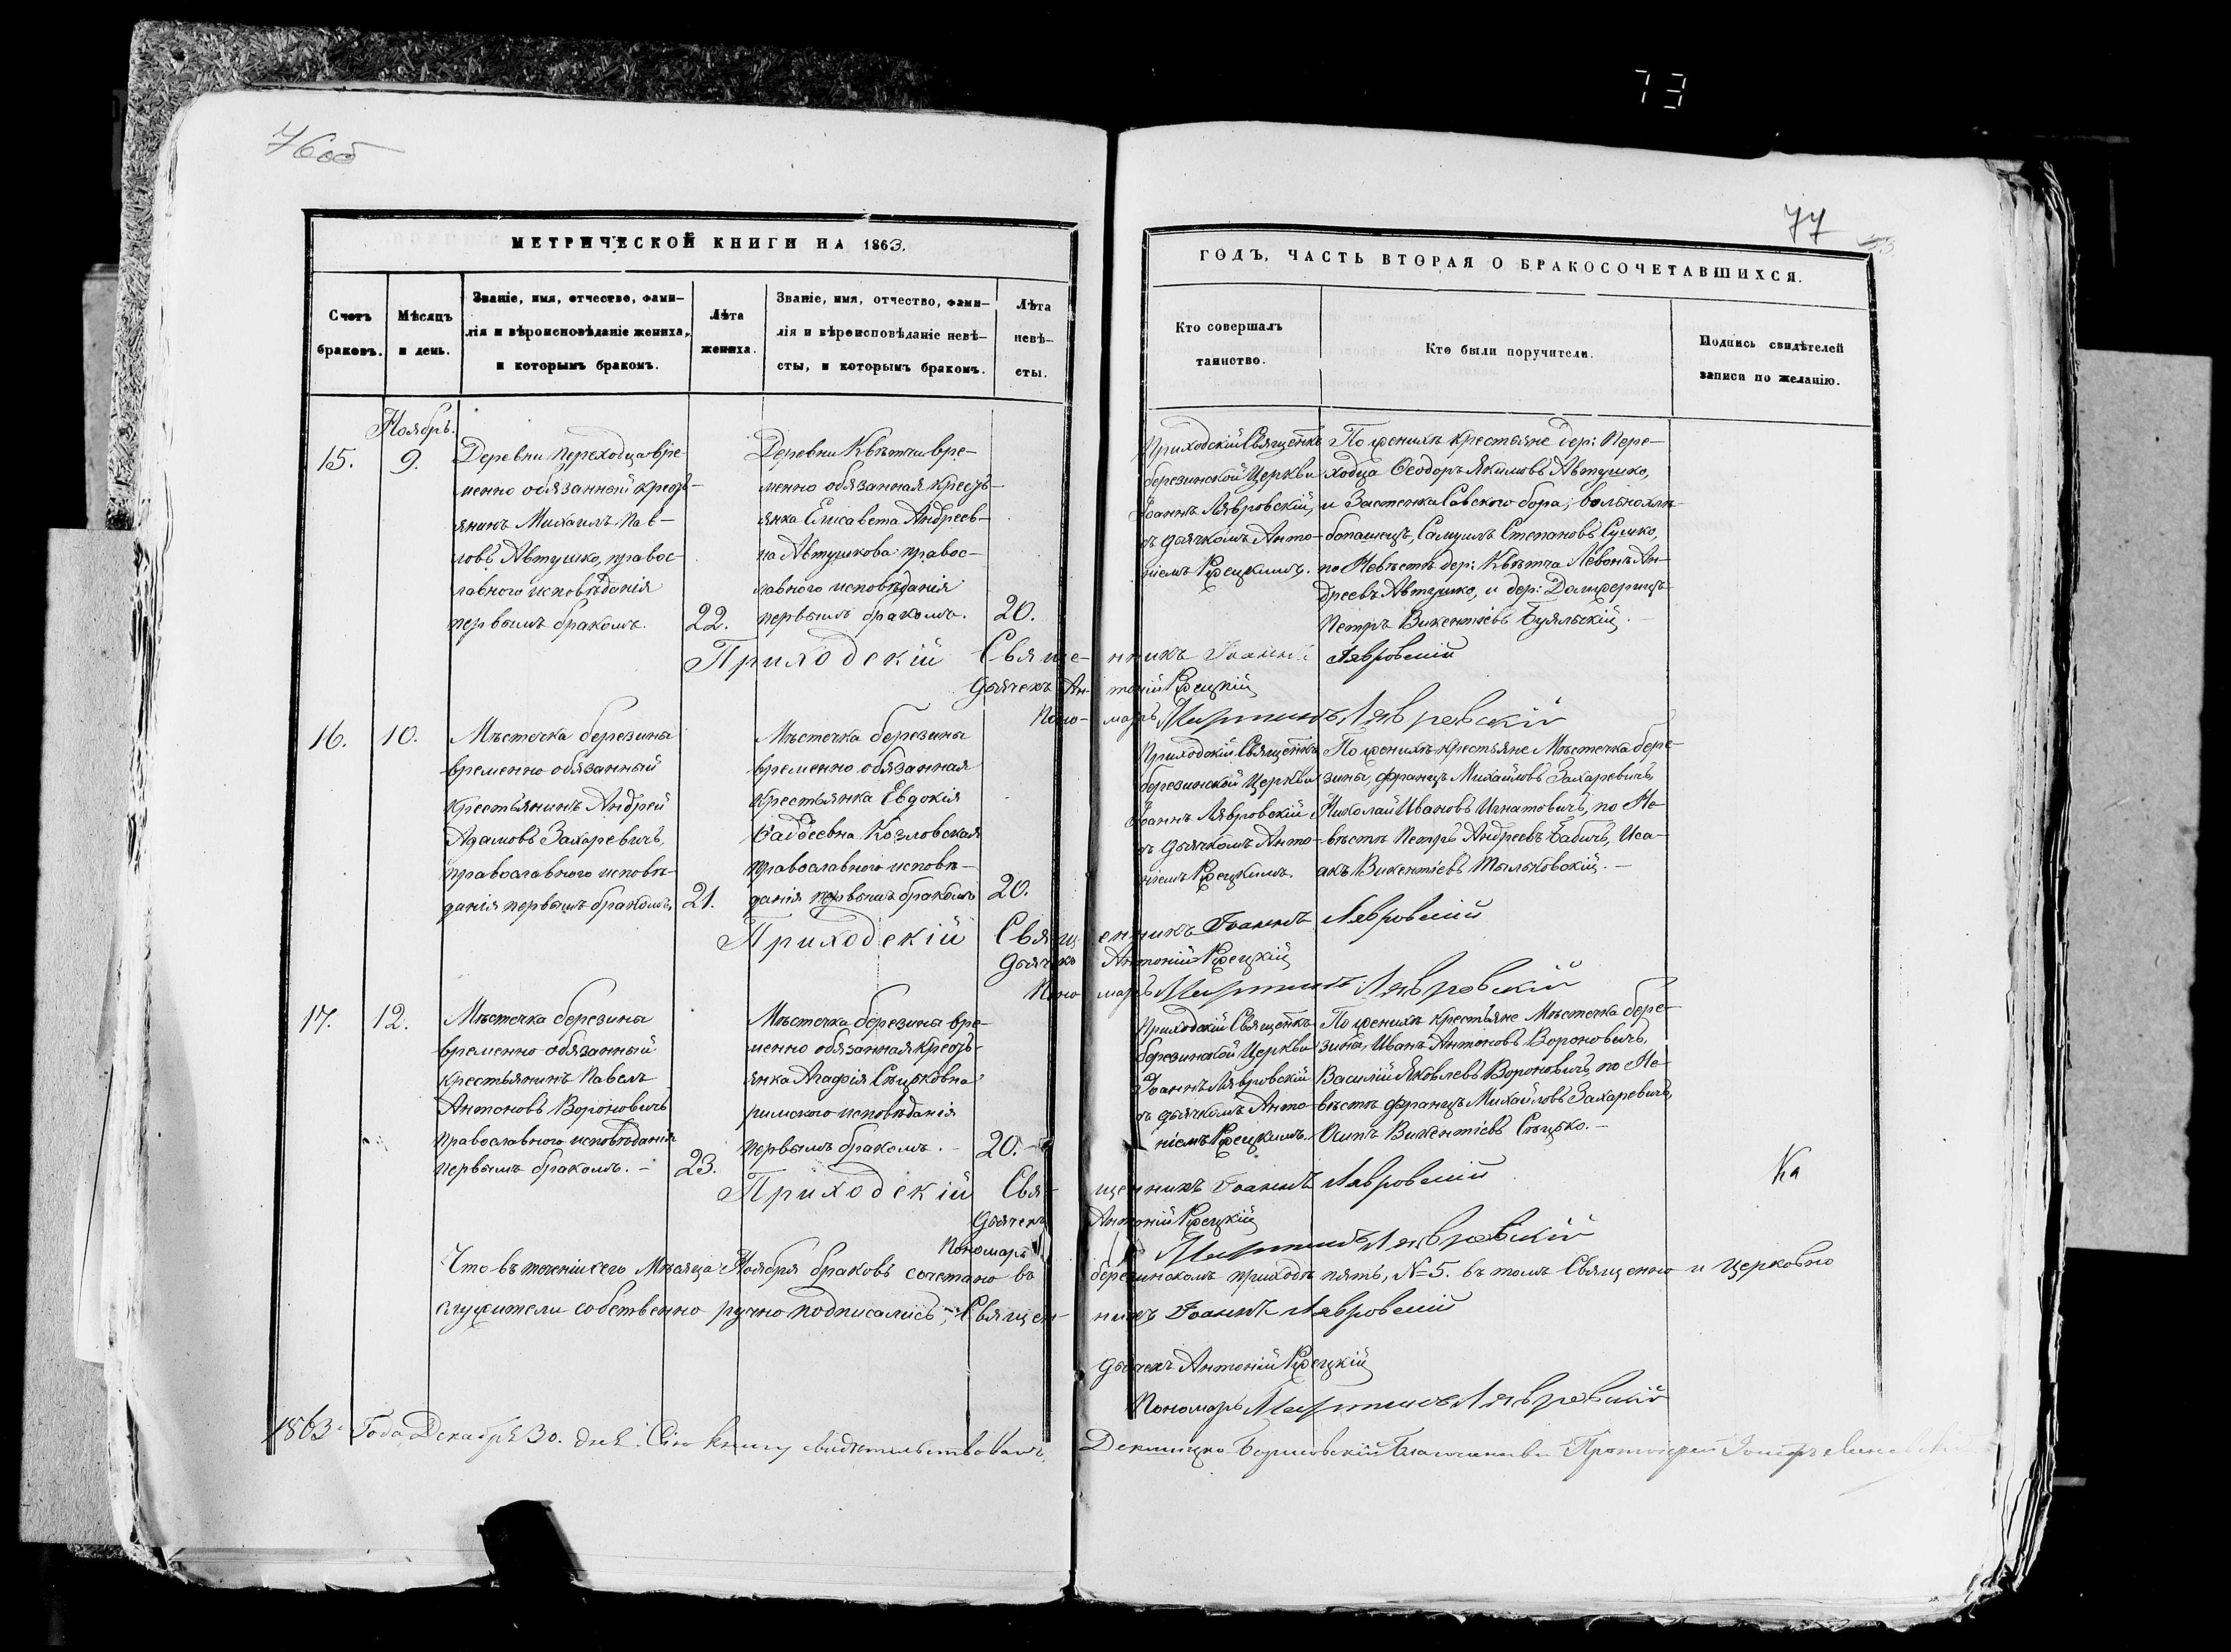 73
76об
77
МЕТРИЧЕСКОЙ КНИГИ НА 1863.
Счетъ
браковъ.
Мѣсяцъ
и день.
Званіе, имя, отчество, фами-
лія и вѣроисповѣданіе жениха,
и которымъ бракомъ.
Лѣта
жениха.
Званіе, имя, отчество, фами-
лія и вѣроисповѣданіе невѣ-
сты, и которымъ бракомъ.
Лѣта
невѣ-
сты.
ГОДЪ, ЧАСТЬ ВТОРАЯ О БРАКОСОЧЕТАВШИХСЯ.
Кто совершалъ
таинство.
Кто были поручители.
Подпись свидѣтелей
записи по желанію.
Ноябрь.
15.
9.
Деревни Переходца вре-
менно обязанный кресть-
янинъ Михаилъ Пав-
ловъ Автушко, правос-
лавного исповѣданія
первымъ бракомъ.
22.
Деревни Квѣтчи вре-
менно обязанная кресть-
янка Елисавета Андреев-
на Автушкова правос-
лавного исповѣданія
первымъ бракомъ.
20.
Приходскій Священникъ
березинской Церкви
Іоаннъ Лявровскій,
съ дьячкомъ Анто-
ніемъ Рѣецкимъ.
По женихѣ крестьяне дер: Пере-
ходца Ѳеодоръ Якимовъ Автушко,
и Застенка Савского бора, вольнохлѣ-
бопашецъ, Самуилъ Степановъ Сушко,
по Невѣстѣ дер: Квѣтча Левонъ Ан-
дреевъ Автушко, и дер:
Петръ Викентіевъ Буяльскій.
Приходскій Священникъ Іоаннъ Лявровскій
Дьячекъ Антоній Рѣецкій
Пономаръ Мартинъ Лявровскій
16.
10.
Мѣстечка березина
временно обязанный
крестьянинъ Андрей
Адамовъ Захаревичъ,
православного исповѣ-
данія первымъ бракомъ,
21.
Мѣстечка березина
временно обязанная
крестьянка Евдокія
Ѳаддеевна Козловская
православного исповѣ-
данія первымъ бракомъ
20.
Приходскій Священникъ
березинской Церкви
Іоаннъ Лявровскій
съ дьячкомъ Анто-
ніемъ Рѣецкимъ.
По женихѣ крестьяне Мѣстечка бере-
зина, францъ Михайловъ Захаревичъ,
Николай Ивановъ Игнатовичъ, по Не-
вѣстѣ Петръ Андреевъ Бабичъ, Иса-
акъ Викентіевъ Тыльковскій. -
Приходскій Священникъ Іоаннъ Лявровскій
Дьячекъ Антоній Рѣецкій
Пономаръ Мартинъ Лявровскій
17.
12.
Мѣстечка березина
временно обязанный
крестьянинъ Павелъ
Антоновъ Вороновичъ
православного исповѣданія
первымъ бракомъ. -
23.
Мѣстечка березина вре-
менно обязанная кресть-
янка Агафія Сѣцковна
римского исповѣданія
первымъ бракомъ. -
20. -
Приходскій Священникъ
березинской Церкви
Іоаннъ Лявровскій
съ дьячкомъ Анто-
ніемъ Рѣецкимъ.
По женихѣ крестьяне Мѣстечка бере-
зина, Иванъ Антоновъ Вороновичъ,
Василій Яковлевъ Вороновичъ, по Не-
вѣстѣ францъ Михайловъ Захаревичъ,
Осипъ Викентіевъ Сѣцько. -
Приходскій Священникъ Іоаннъ Лявровскій
Ка
Дьячекъ Антоній Рѣецкій
Пономаръ Мартинъ Лявровскій
Что въ теченіи сего Мѣсяца Ноября браковъ сочетано въ березинскомъ приходѣ пять, №5. въ томъ Священно и церковно
служители собственно ручно подписались, - Священникъ Іоаннъ Лявровскій
Дьячекъ Антоній Рѣецкій
Пономаръ Мартинъ Лявровскій
1863 Года, Декабря 30. дня. Сію книгу свидѣтельствовалъ, Борисовскій Благочинный Протоіерей